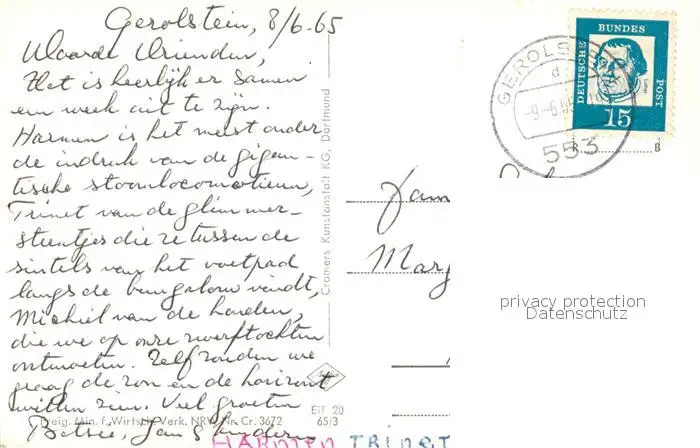 Gerolstein, 8/6.65
Waarde Vrienden,
Het is heerlijk er samen
een week uit te zijn.
Harmen is het meest onder
de indruk van de gigan-
tische stoomlocomotieven,
Trinet van de glimmer-
steentjes die ze tussen de
sintels van het voetpad
langs de bungalow vindt,
Michiel van de honden,
die we op onze zwerftochten
ontmoeten. Zelf zouden we
graag de zon en de horizont
willen zien. Veel groeten
Betsie, Jan & kinderen
HARMEN TRINET
Freig. Min. f. Wirtsch. Verk. NRW Nr. Cr. 3672
Eif 20
65/3
Cramers Kunstanstalt KG, Dortmund
Fam
Marg
GEROLSTEIN
d
-9.-6.65
553
DEUTSCHE
BUNDES
POST
15
privacy protection
Datenschutz